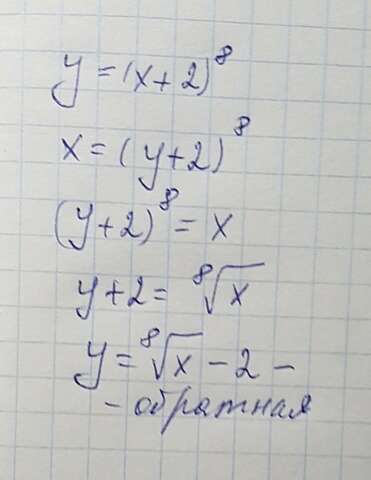 y = (x+2)⁸
x = (y+2)⁸
(y+2)⁸ = x
y+2 = ⁸√x
y = ⁸√x - 2 -
- обратная